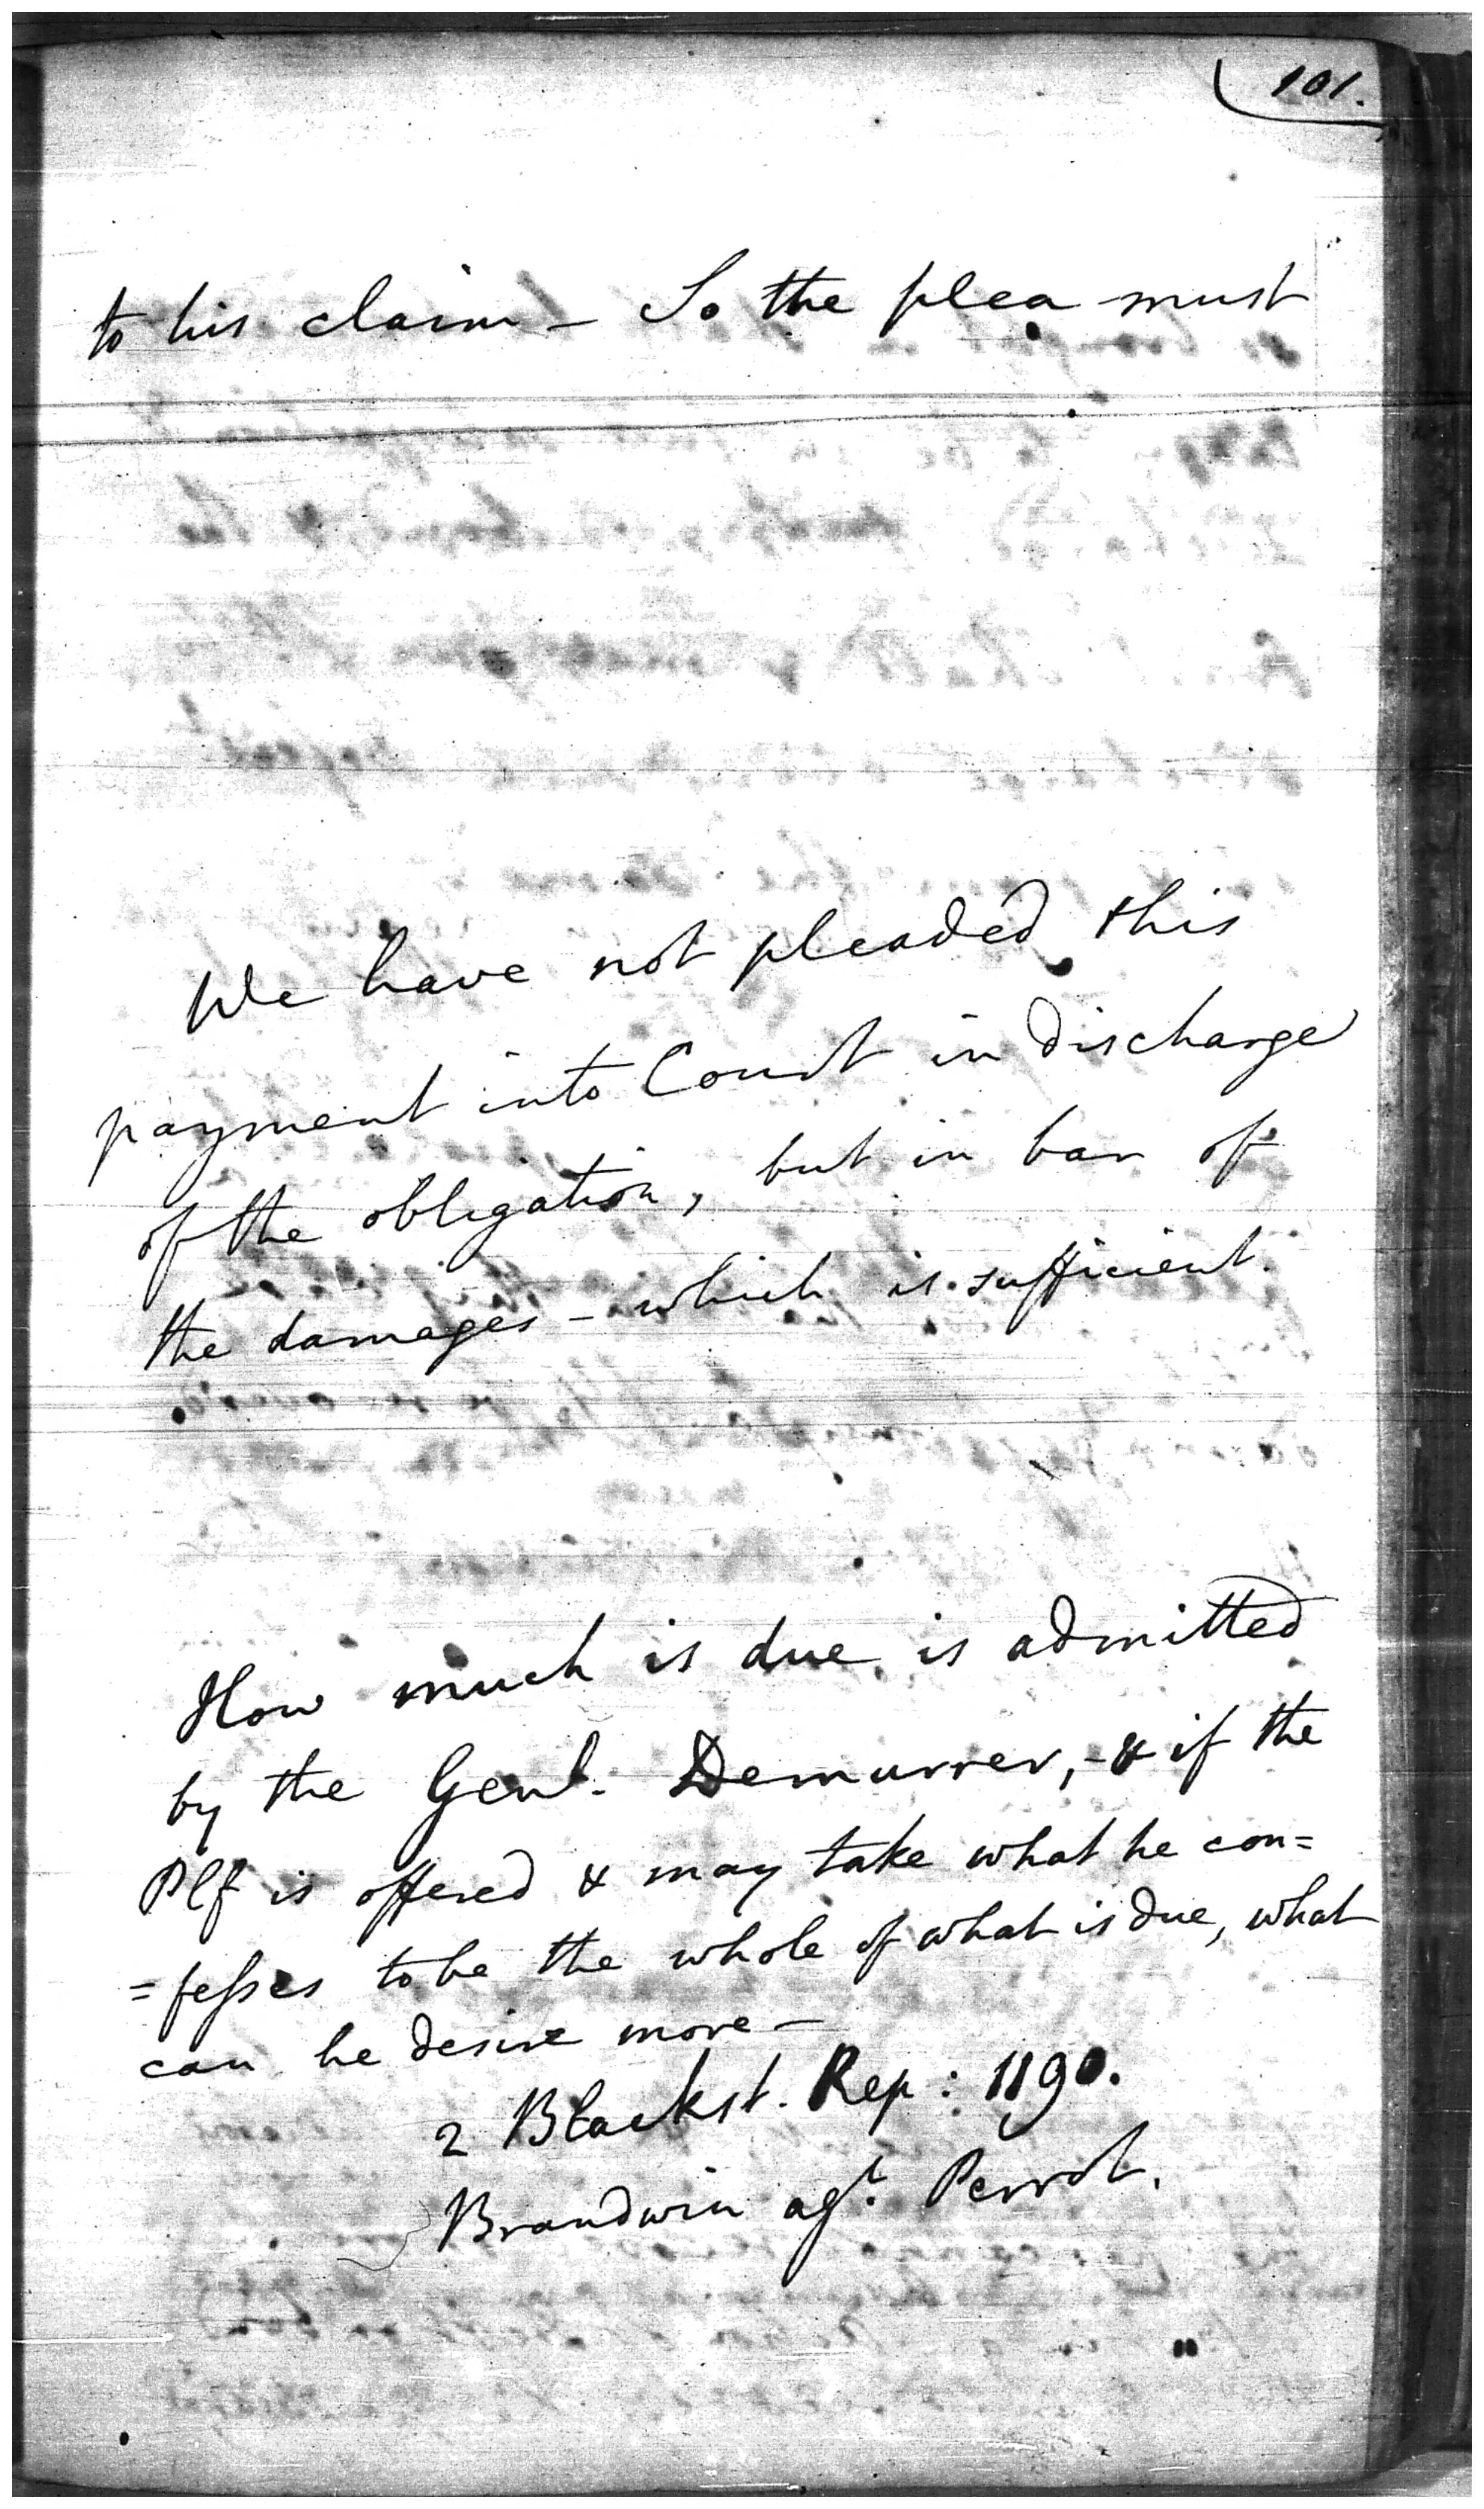 101.
to his claim - So the plea must
We have not pleaded this
payment into Court in discharge
of the obligation, but in bar of
the damages - which is sufficient.
How much is due, is admitted
by the Genl. Demurrer, - & if the
Plf is offered & may take what he con=
=fesses to be the whole of what is due, what
can he desire more -
2 Blackst. Rep: 1190.
Brandwin agt. Perrot.